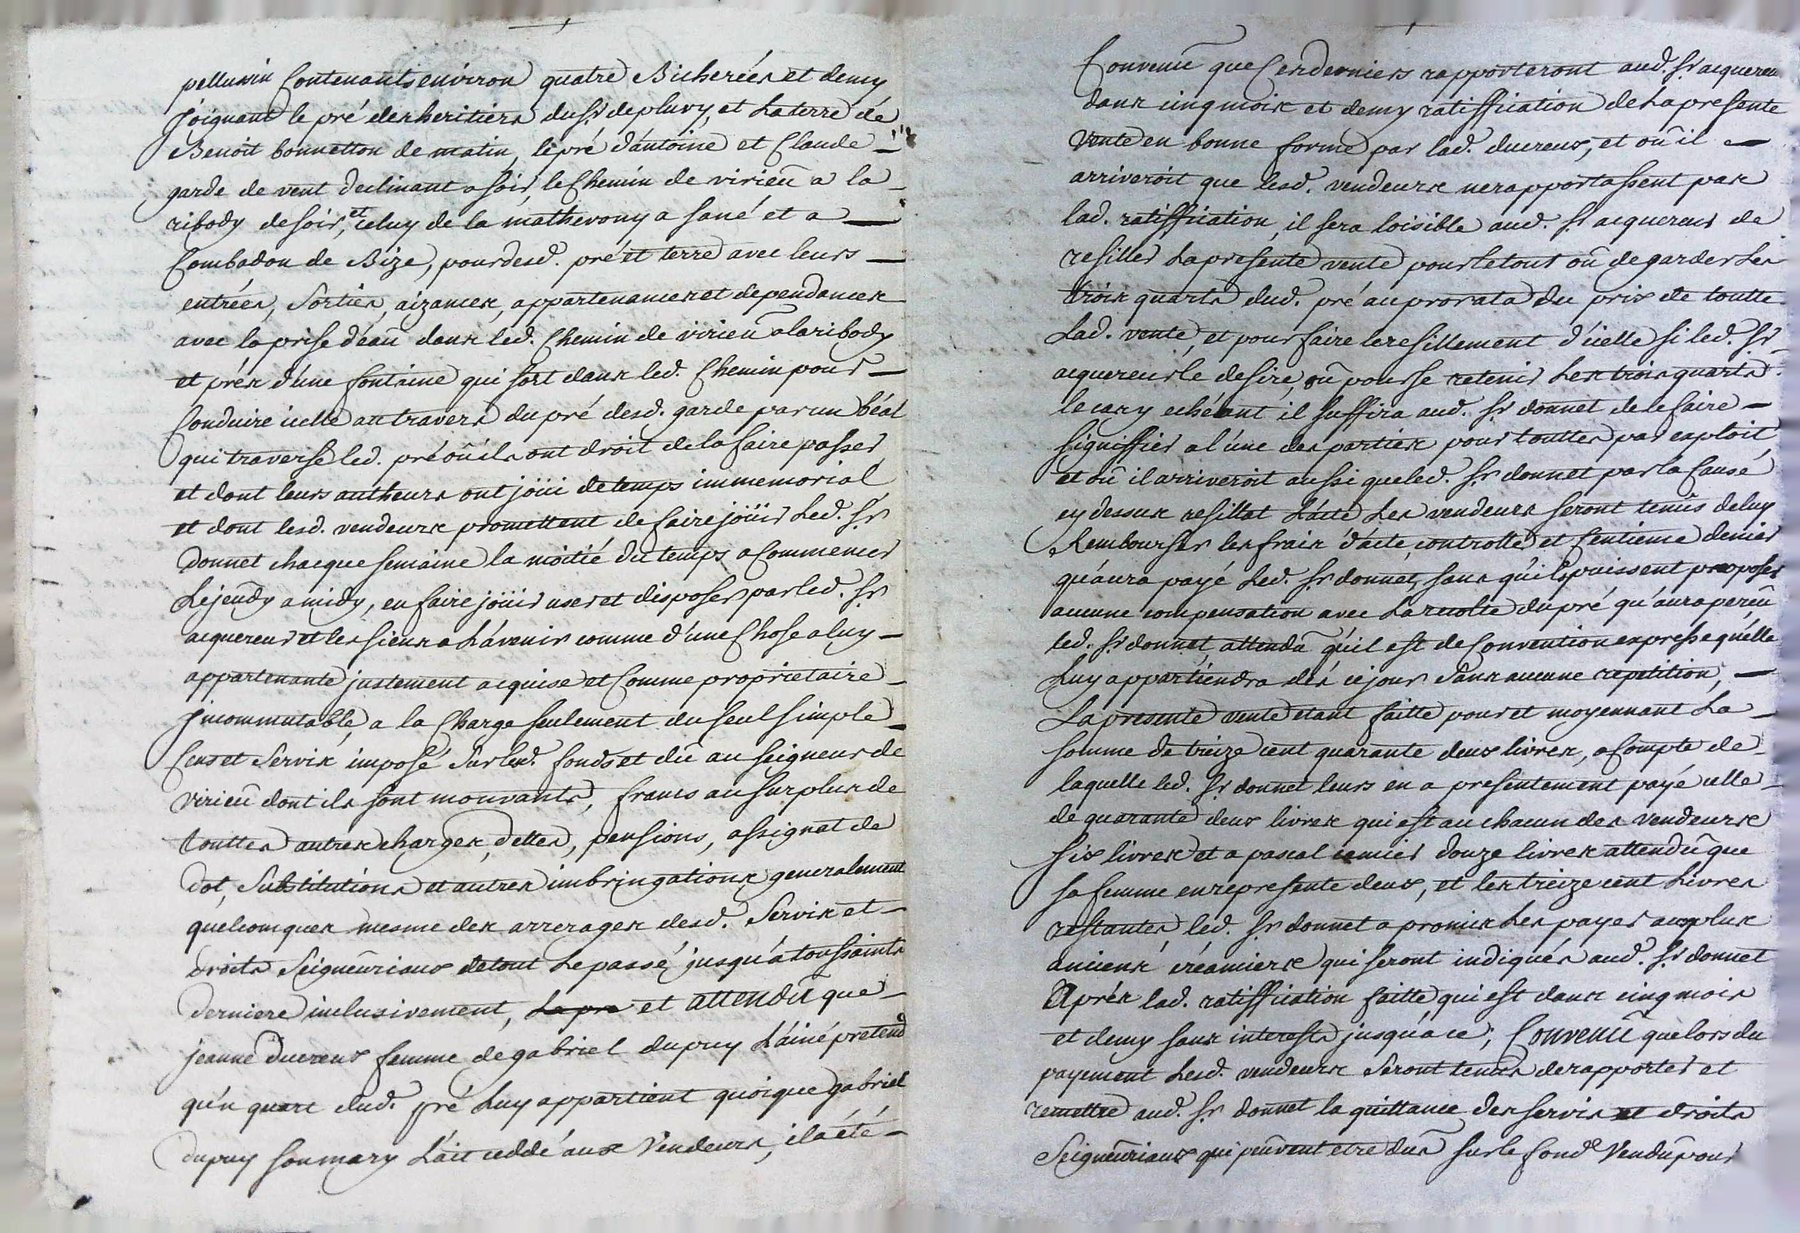 pellussin Contenants environ quatre Bicherées et demy
Joignant le pré des heritiers du sr. depluvy, et la terre de
Benoit bonnetton de matin, le pré d'antoine et Claude
garde de vent declinant a soir le Chemin de virieu a la
ribody de soir, et celuy de la mathevony a sané et a
Combadon de Bize, pour desd. pré et terre avec leurs
entrées, sorties, aizances, appartenances et dependances
avec la prise d'eau dans led. Chemin de virieu a la ribody
et prés d'une fontaine qui sort dans led. Chemin pour
Conduire icelle au travers du pré desd. garde par un béal
qui traverse led. pré où ils ont droit de la faire passer
et dont leurs autheurs ont joüi de temps immemorial
et dont lesd. vendeurs promettent de faire joüir led. sr.
donnet chaeque semaine la moitié du temps a Commencer
Le jeudy a midy, en faire joüir user et disposer par led. sr.
acquereur et les siens a L'avenir comme d'une Chose a luy
appartenante justement acquise et Comme proprietaire
Jncommutable, a la Charge seulement du seul simple
Cens et Servis imposé sur led. fonds et dû au seigneur de
virieu dont ils sont mouvants, francs au surplus de
touttes autres charges, dettes, pensions, assignat de
dot, substitutions et autres imbringations generalement
quelconques mesme des arrerages desd. Servis et
droits Seigneuriaux de tout Le passé, jusqu'a toussaints
derniere inclusivement, La pre et attendu que
jeanne Ducreux femme de gabriel dupuy L'ainé pretend
qu'n quart dud. pré Luy appartient quoique gabriel
dupuy son mary L'ait ceddé aux Vendeurs, il a été
Convenu que Ces derniers rapporteront aud. sr. acquereur
dans cinq mois et demy ratiffication de La presente
Vente en bonne forme par lad. ducreux, et où il
arriveroit que lesd. vendeurs ne rapportassent pas
lad. ratiffication, il sera loisible aud. sr. acquereur de
resiller La presente vente pour le tout ou de garder Les
trois quarts dud. pré au prorata du prix de toutte
Lad. vente, et pour faire le resillement d'icelle si led. sr.
acquereur le desire, ou pour se retenir Les trois quarts
le cas y echéant il suffira aud. sr. donnet de le faire
signiffier a l'une des parties pour touttes par exploit,
et où il arriveroit aussi que led. sr. donnet par la Cause
cy dessus resillat L'acte Les vendeurs seront tenus de luy
Rembourser les frais d'acte, controlle et Centieme denier
qu'aura payé Led. sr. donnet, sans qu'ils puissent proposer
aucune compensation avec La recolte du pré qu'aura perçeu
led. sr. donnet, attendu qu'il est de Convention expresse qu'elle
Luy appartiendra dés ce jour sans aucune repetition,
La presente vente etant faitte pour et moyennant La
somme de treize cent quarante deux livres, a Compte de
laquelle led. sr. donnet leurs en a presentement payé celle
de quarante deux livres qui est au chacun des vendeurs
six livres et a pascal cemier douze livres attendu que
sa femme en represente deux, et les treize cent Livres
restantes led. sr. donnet a promis Les payer au plus
anciens créanciers qui seront indiqués aud. sr. donnet
Aprés lad. ratiffication faitte qui est dans cinq mois
et demy sans interests jusqu'a ce; Convenu que lors du
payement Lesd. vendeurs seront tenus de rapporter et
remettre aud. sr. donnet la quittance des servis et droits
Seigneuriaux qui peuvent etre dus sur le fond Vendu pour